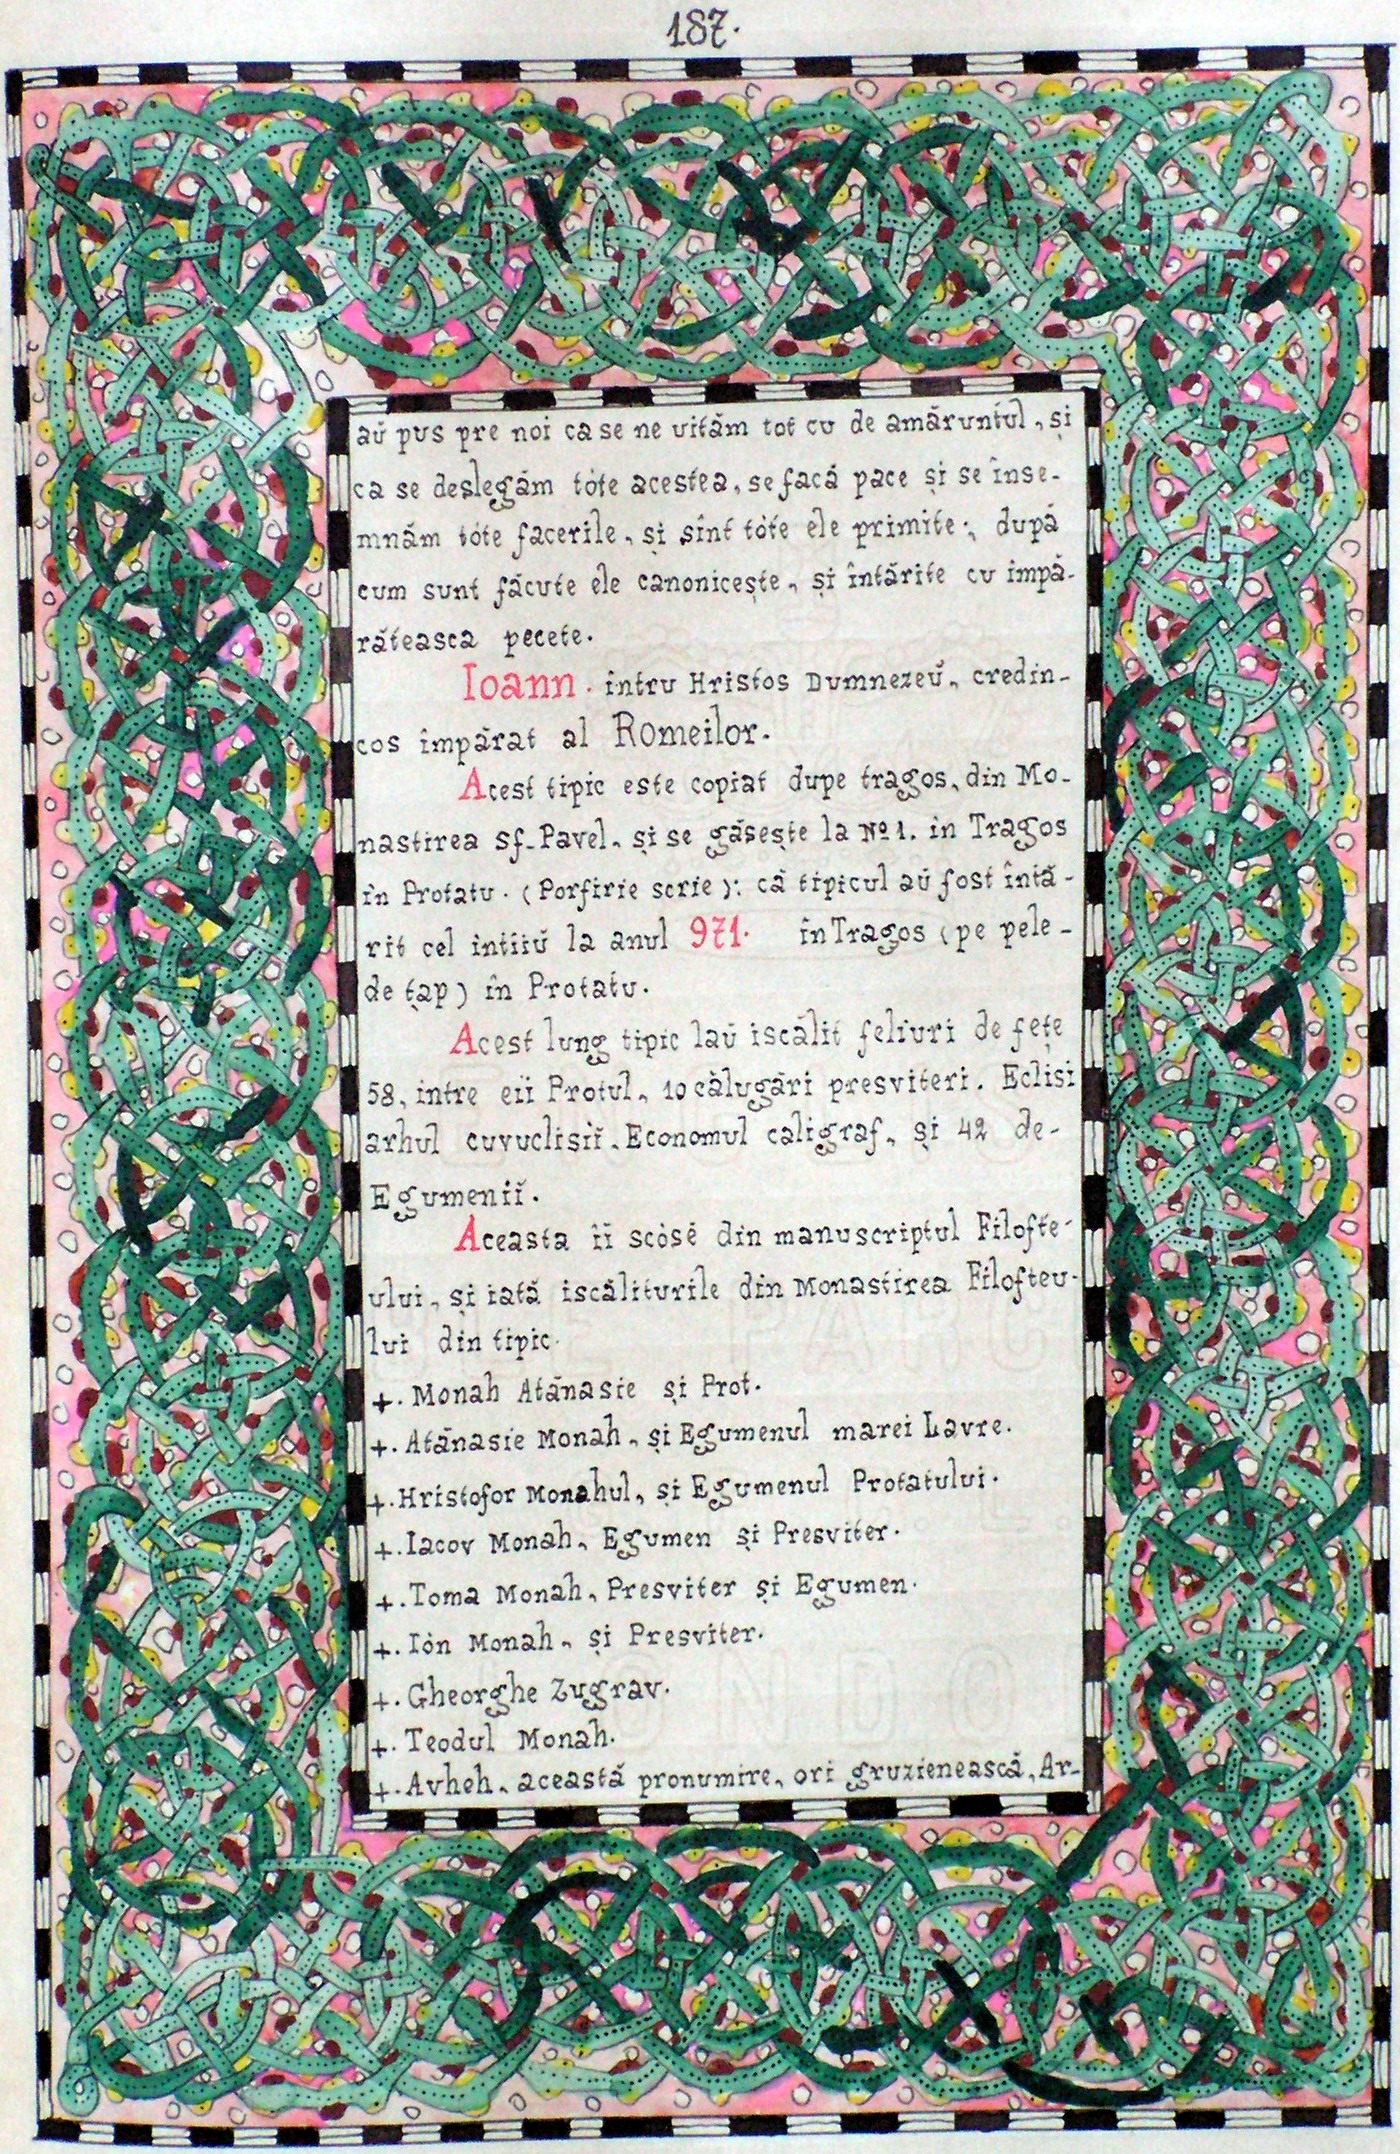 187.
aŭ pus pre noi ca se ne uităm tot cu de amăruntul, și
ca se deslegăm tòte acestea, se facă pace și se înse-
mnăm tòte facerile, și sînt tòte ele primite; după
cum sunt făcute ele canonicește, și întărite cu împă-
răteasca pecete.
Ioann. intru Hristos Dumnezeŭ, credin-
cos împărat al Romeilor.
Acest tipic este copiat dupe tragos, din Mo-
nastirea Sf. Pavel, și se găsește la No 1. in Tragos
în Protatu. (Porfirie scrie): că tipicul aŭ fost întă-
rit cel intiiŭ la anul 971. în Tragos (pe pele-
de țap) în Protatu.
Acest lung tipic laŭ iscălit feliuri de fețe
58, intre eii Protul, 10 călugări presviteri. Eclisi
arhul cuvuclisiĭ, Economul caligraf, și 42 de-
Egumeniĭ.
Aceasta iĭ scòsĕ din manuscriptul Filofte-
ului, și iată iscăliturile din Monastirea Filofteu-
lui din tipic.
+. Monah Atănasie și Prot.
+. Atănasie Monah, și Egumenul marei Lavre.
+. Hristofor Monahul, și Egumenul Protatului.
+. Iacov Monah, Egumen și Presviter.
+. Toma Monah, Presviter și Egumen.
+. Iòn Monah, și Presviter.
+. Gheorghe Zugrav.
+. Teodul Monah.
+. Avheh, această pronumire, ori gruzienească, Ar-